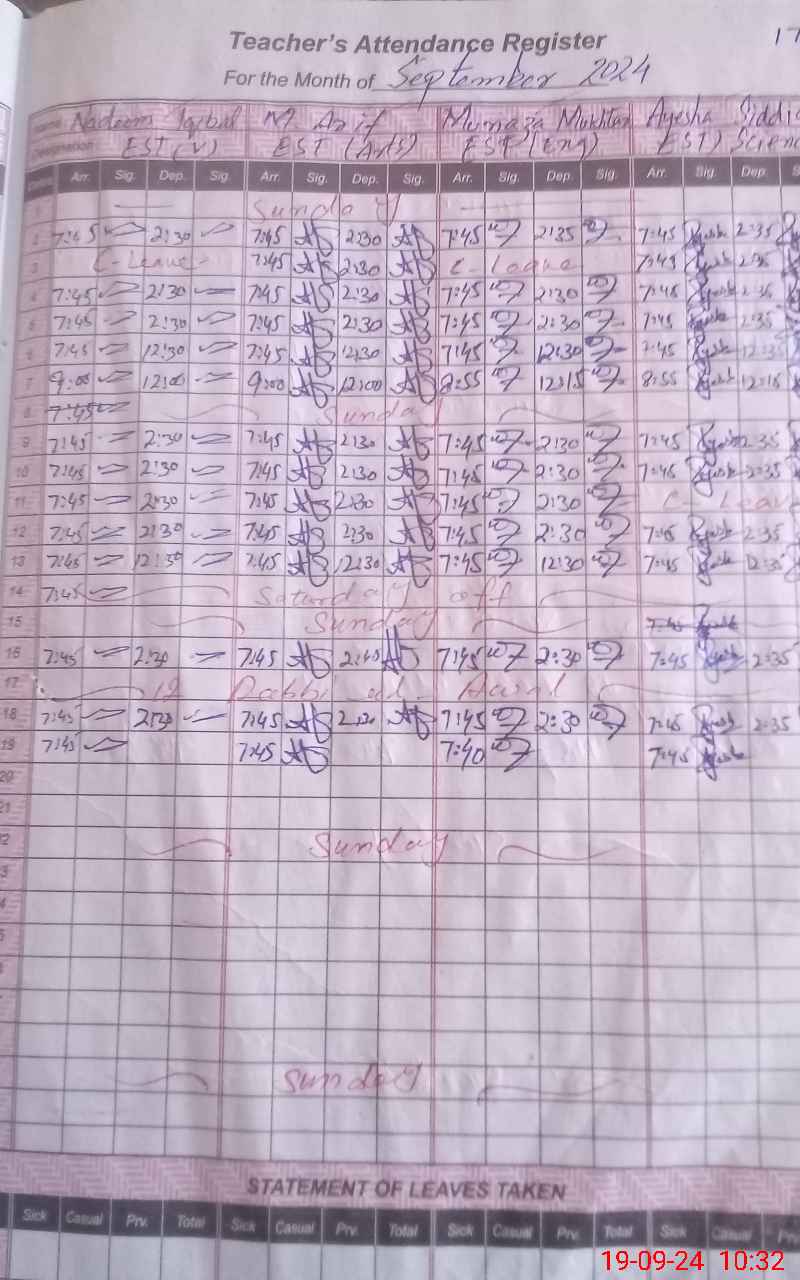 17
Teacher's Attendance Register
For the Month of September 2024
Name Nadeem Iqbal M. Arif Mumaza Mukhtar Ayesha Siddi
Designation EST (V) EST (Arts) EST (Eng) EST) Scien
Arr. Sig. Dep. Sig. Arr. Sig. Dep. Sig. Arr. Sig. Dep. Sig. Arr. Sig. Dep. S
1 Sunday
2 7:45 2:30 7:45 2:30 7:45 2:35 7:45 2:35
3 C-Leave 7:45 2:30 C-Leave 7:45 2:35
4 7:45 2:30 7:45 2:30 7:45 2:30 7:45 2:35
5 7:45 2:30 7:45 2:30 7:45 2:30 7:45 2:35
6 7:45 12:30 7:45 12:30 7:45 12:30 7:45 12:35
7 9:00 12:00 9:00 12:00 8:55 12:15 8:55 12:15
8 7:45 Sunday
9 7:45 2:30 7:45 2:30 7:45 2:30 7:45 2:35
10 7:45 2:30 7:45 2:30 7:45 2:30 7:45 2:35
11 7:45 2:30 7:45 2:30 7:45 2:30 C-Leav
12 7:45 2:30 7:45 2:30 7:45 2:30 7:45 2:35
13 7:45 12:30 7:45 12:30 7:45 12:30 7:45 12:35
14 7:45 Saturday off
15 Sunday 7:45
16 7:45 2:30 7:45 2:40 7:45 2:30 7:45 2:35
17 12 Rabbi ul- Awal
18 7:45 2:30 7:45 2:30 7:45 2:30 7:45 2:35
19 7:45 7:45 7:40 7:45
20
21
2 Sunday
3
4
5
Sunday
STATEMENT OF LEAVES TAKEN
Sick Casual Prv. Total Sick Casual Prv. Total Sick Casual Prv. Total Sick Casual Prv
19-09-24 10:32